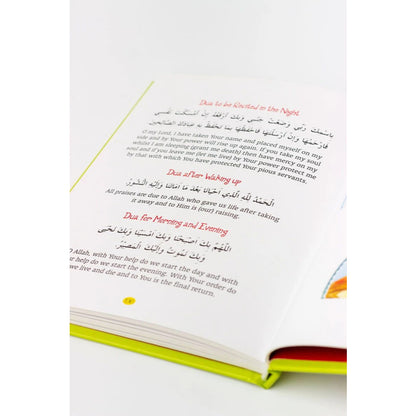 Dua to be Recited in the Night
بِاسْمِكَ رَبِّي وَضَعْتُ جَنْبِي وَبِكَ أَرْفَعُهُ إِنْ أَمْسَكْتَ نَفْسِي
فَارْحَمْهَا وَإِنْ أَرْسَلْتَهَا فَاحْفَظْهَا بِمَا تَحْفَظُ بِهِ عِبَادَكَ الصَّالِحِينَ
O my Lord, I have taken Your name and placed myself on my
side and by Your power will rise up again. If you take my soul
whilst I am sleeping (grant me death) then have mercy on my
soul and if you leave me (let me live) by Your power protect me
by that with which You have protected Your pious servants.
Dua after Waking up
الْحَمْدُ لِلَّهِ الَّذِي أَحْيَانَا بَعْدَ مَا أَمَاتَنَا وَإِلَيْهِ النُّشُورُ
All praises are due to Allah who gave us life after taking
it away and to Him is (our) raising.
Dua for Morning and Evening
اللَّهُمَّ بِكَ أَصْبَحْنَا وَبِكَ أَمْسَيْنَا وَبِكَ نَحْيَى
وَبِكَ نَمُوتُ وَإِلَيْكَ الْمَصِيْرُ
O Allah, with Your help do we start the day and with
our help do we start the evening. With Your order do
we live and die and to You is the final return.